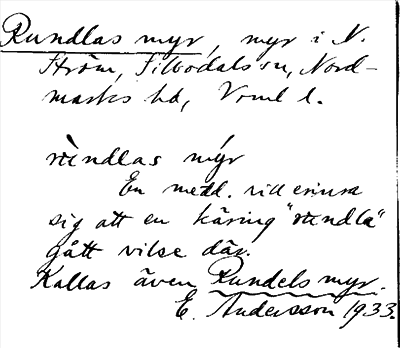 Rundlas myr, myr i N.
Ström, Silbodals sn, Nord-
marks hd, Vrml l.
rundlas mýr
En medd. vill erinra
sig att en käring "rundla"
gått vilse där.
Kallas även Rundels myr.
E. Andersson 1933.